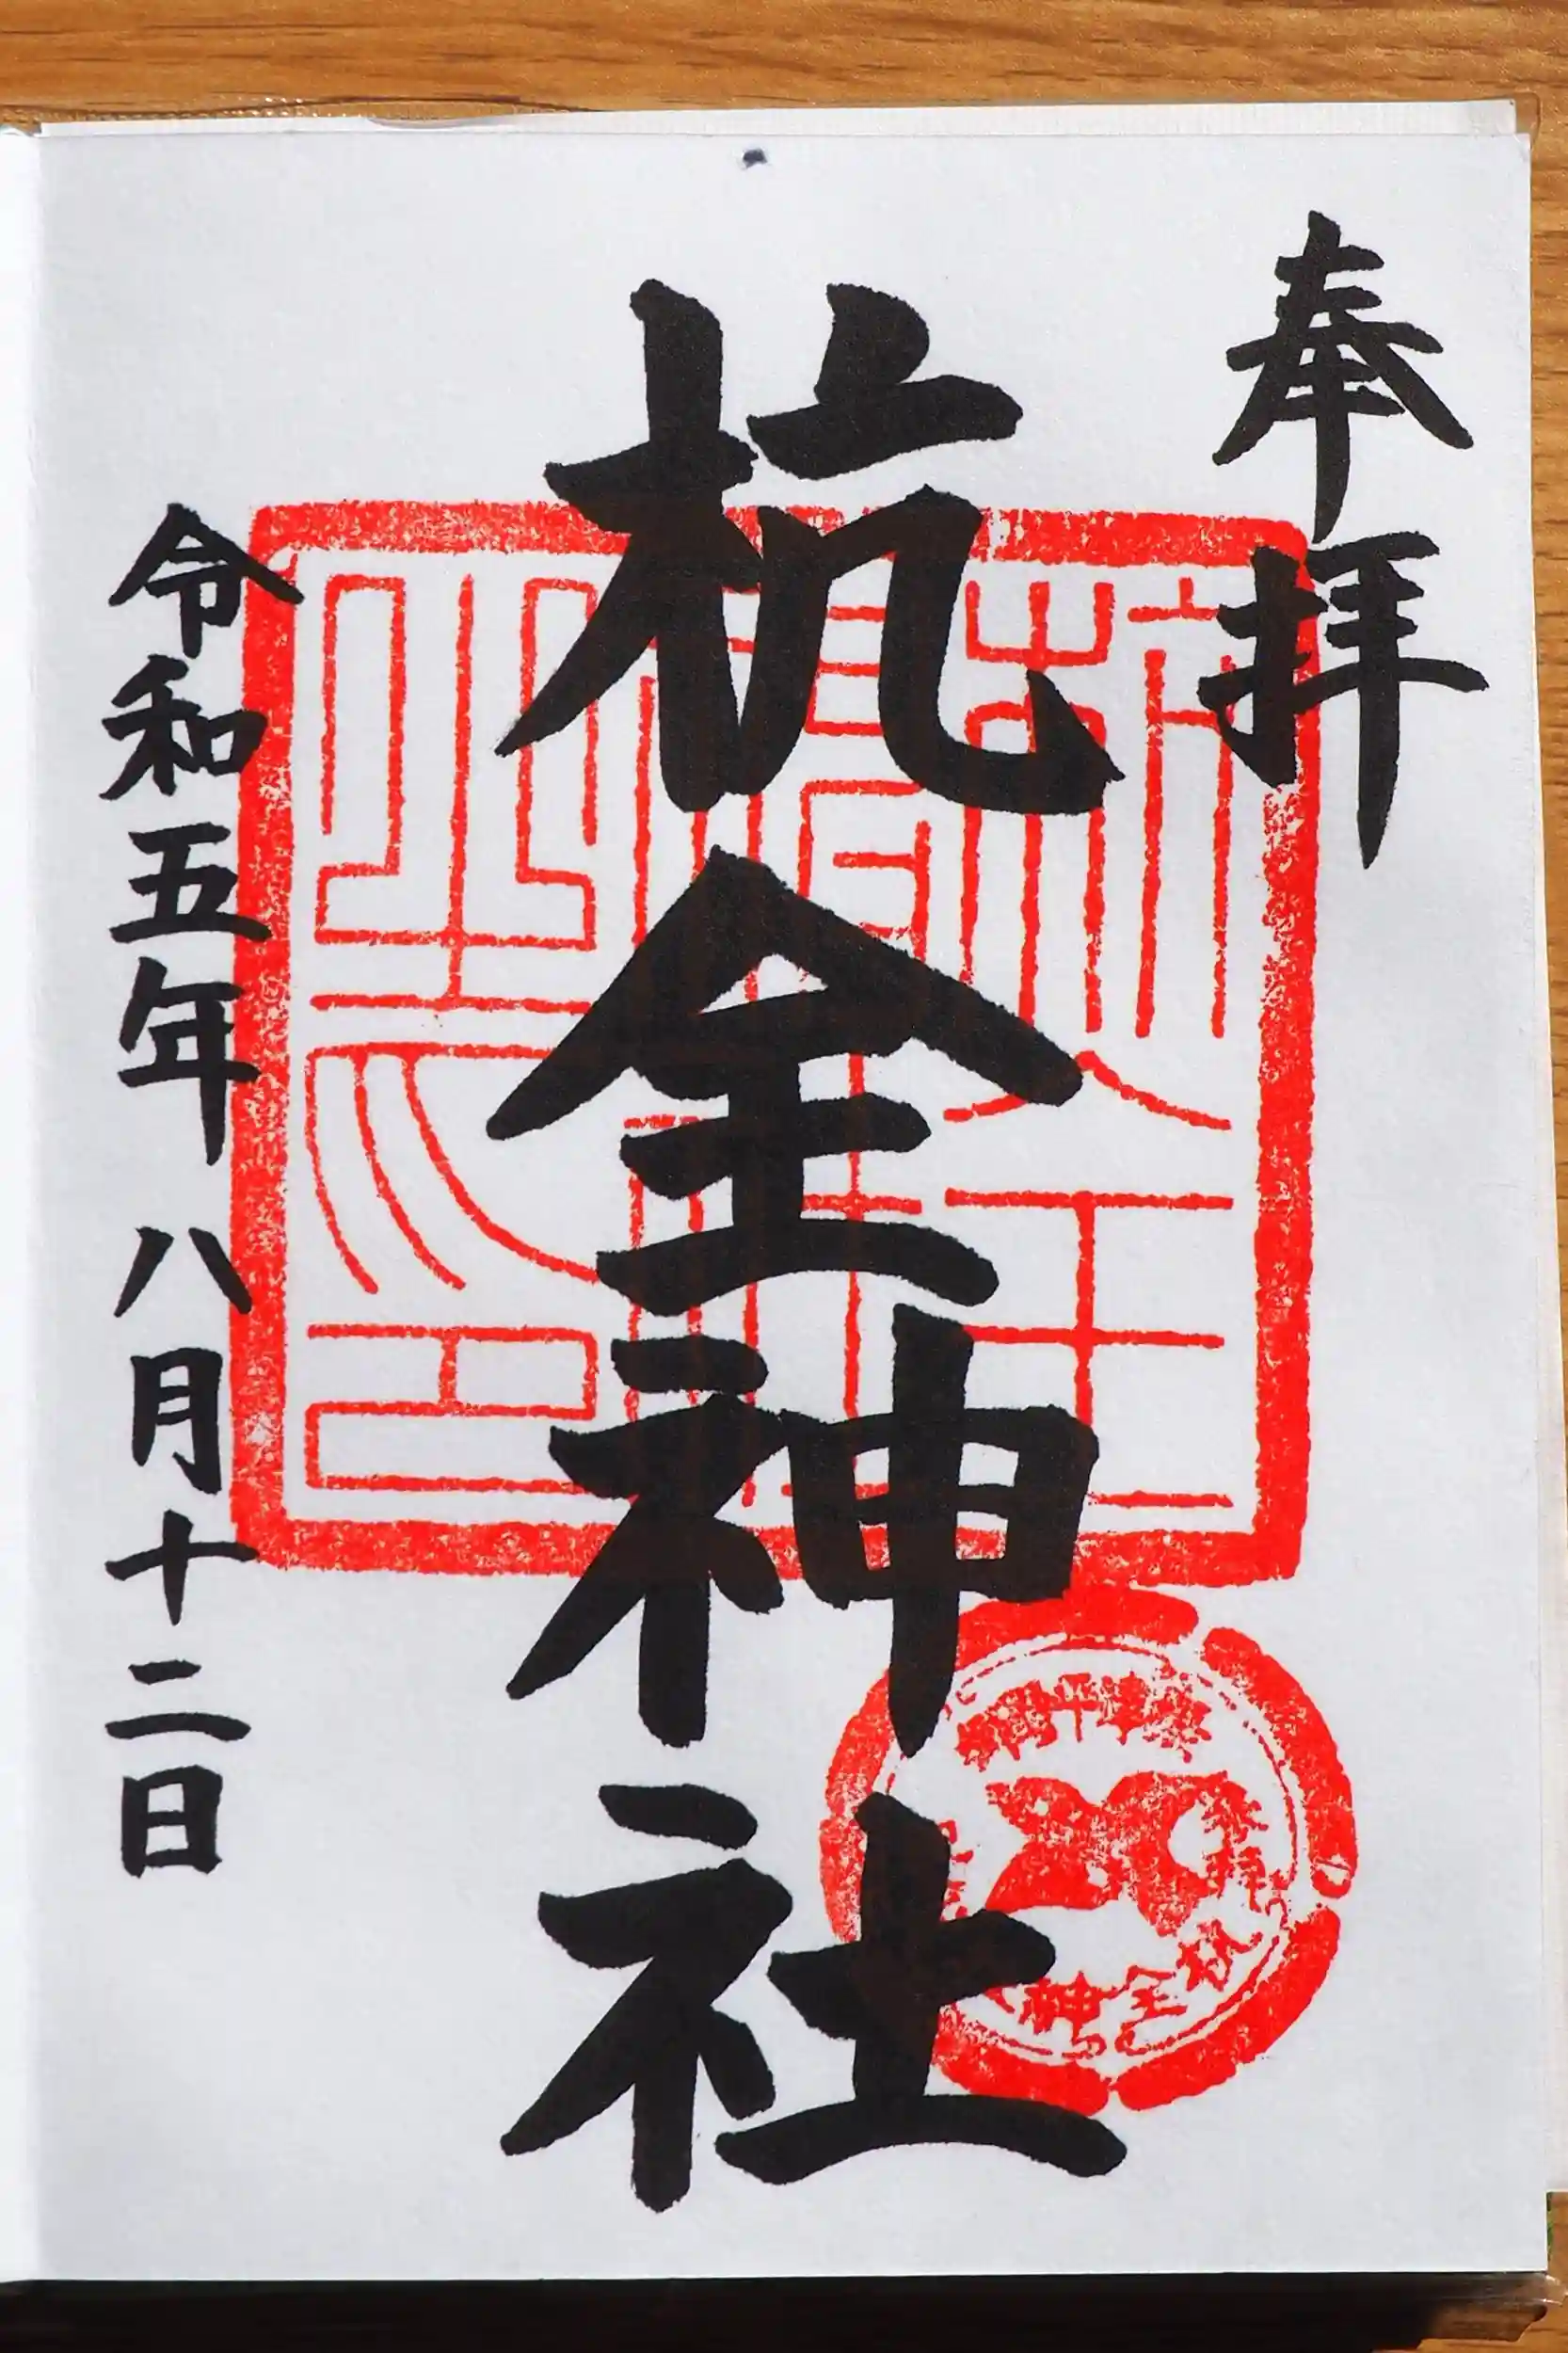 奉拝
杭全神社
令和五年八月十二日